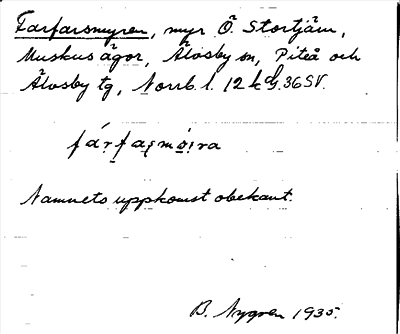 Farfarsmyren, myr Ö. Stortjärn,
Muskus ägor, Älvsby sn, Piteå och
Älvsby tg, Norrb. l. 12 k dj. 36 SV.
fá̱rfaṣmò̱i̭ra
Namnets uppkomst obekant.
B. Nygren 1935.